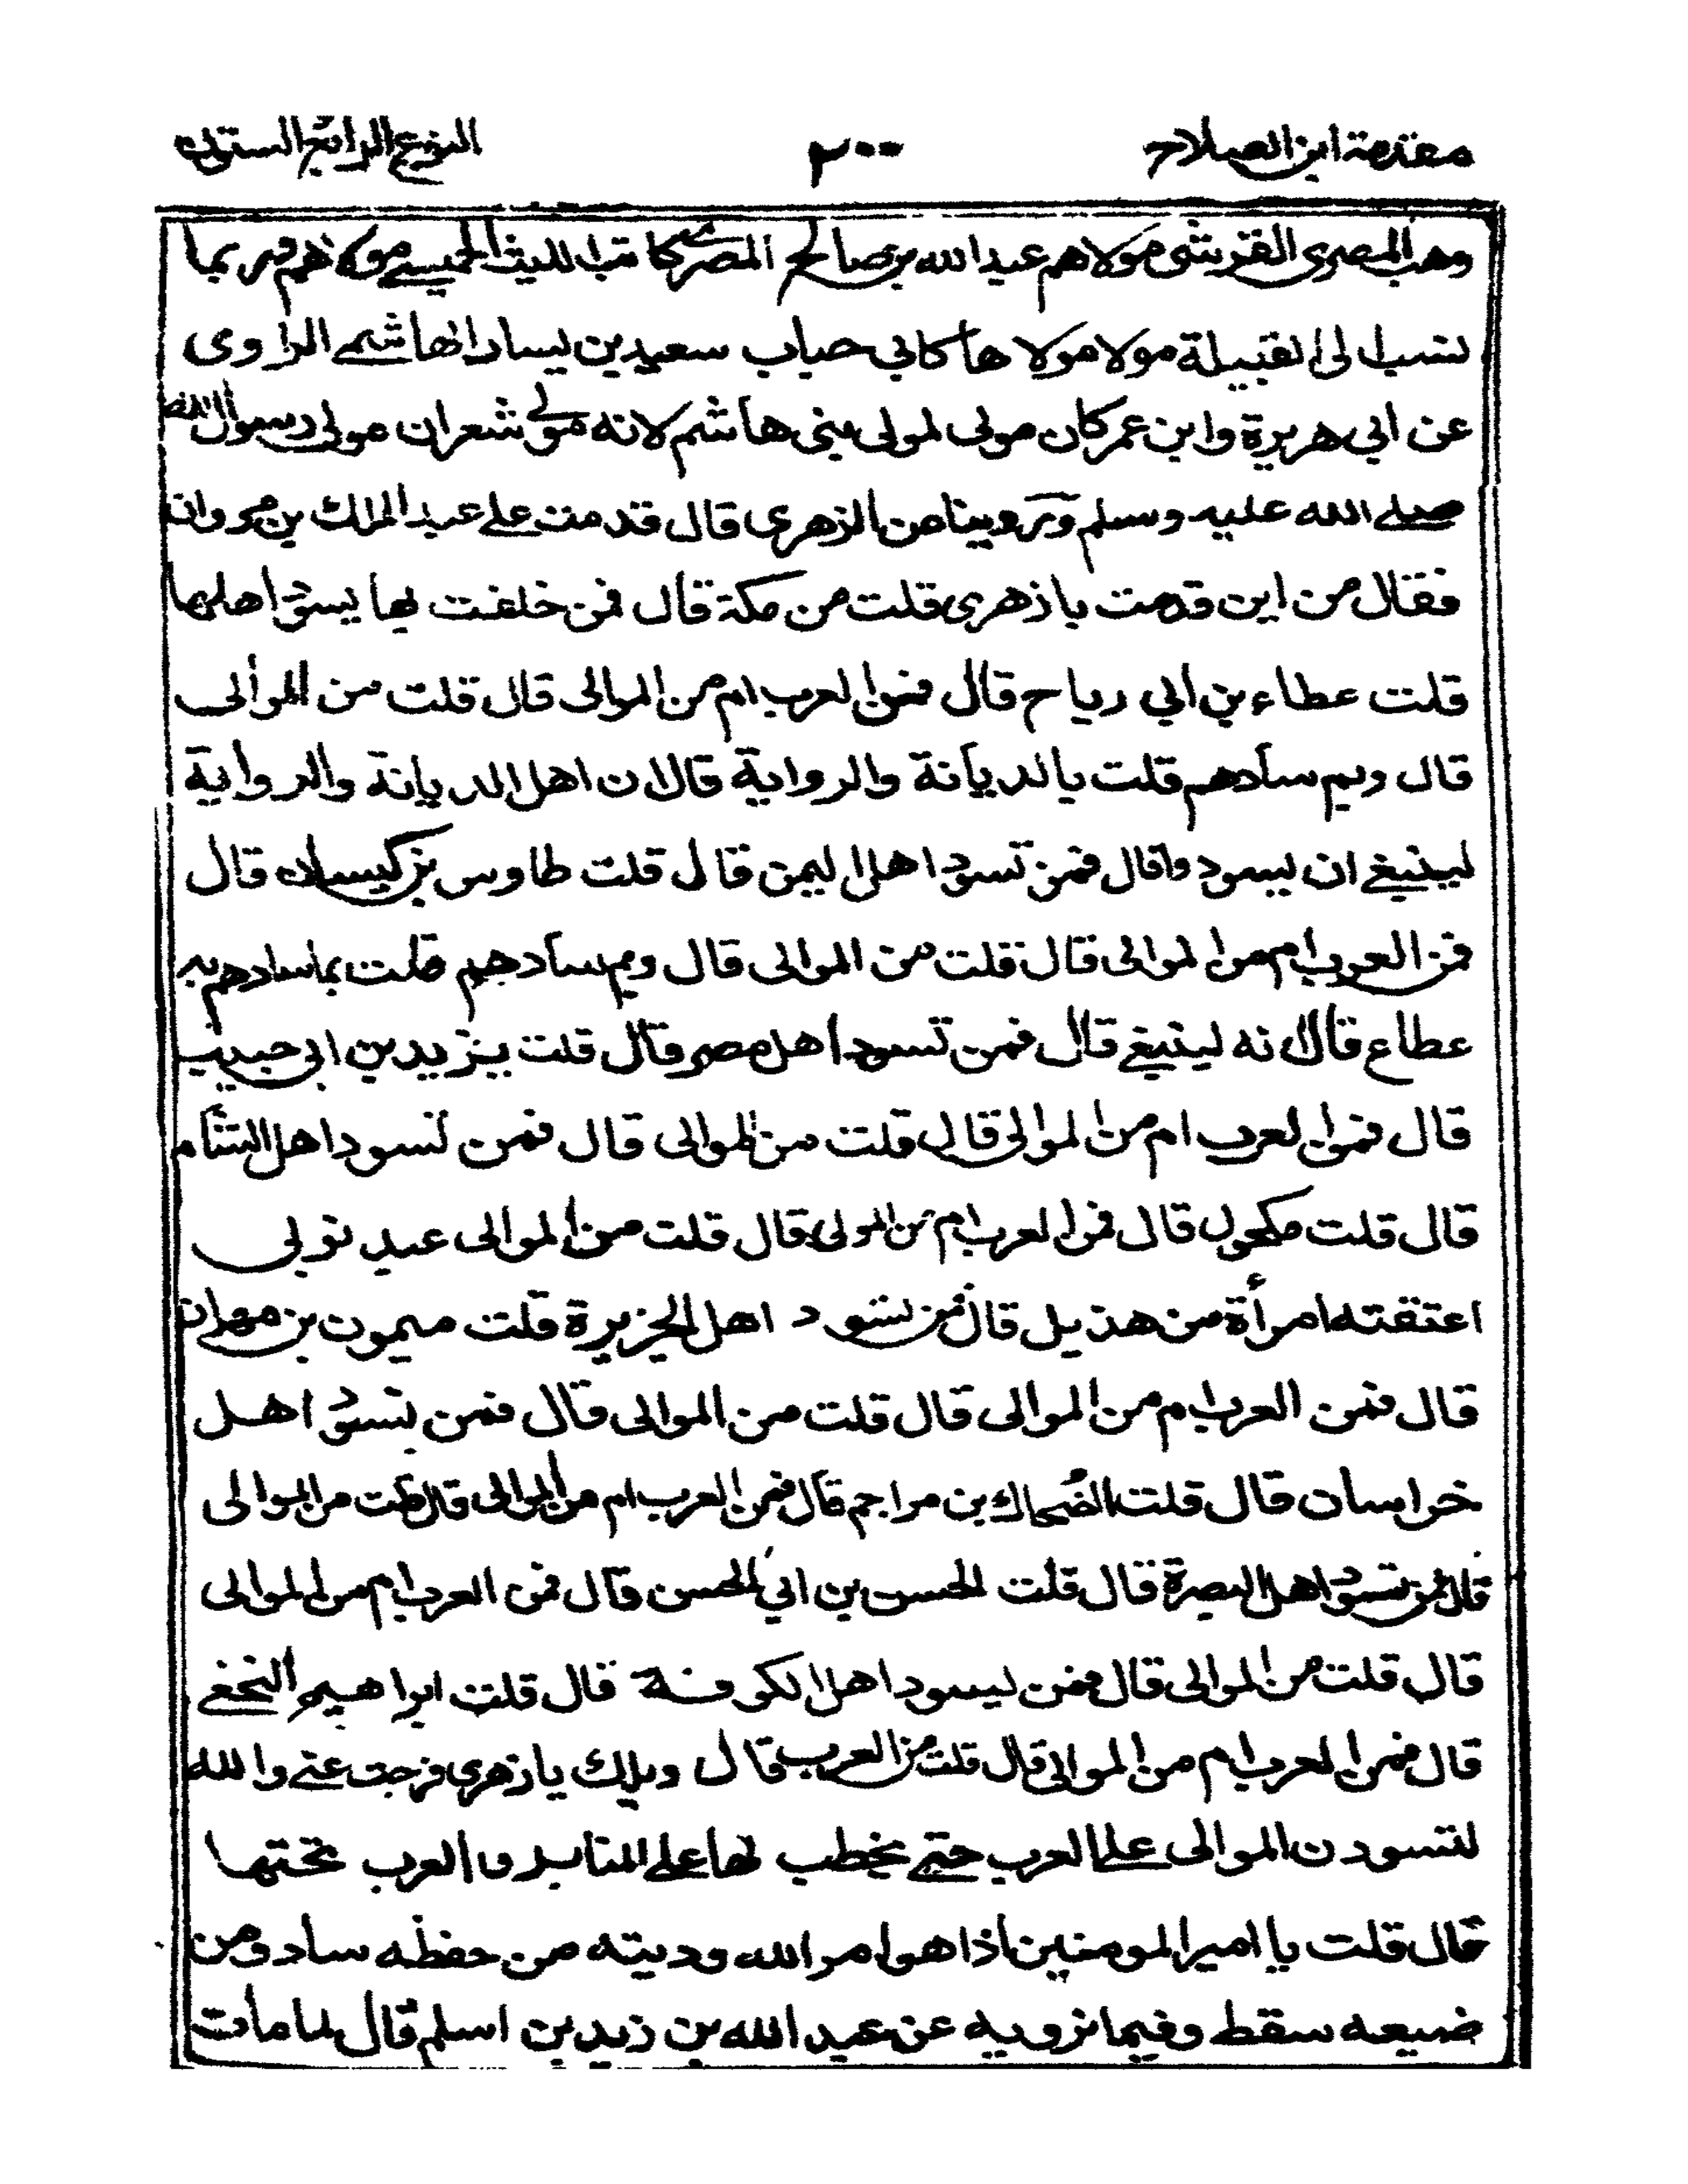 مقدمة ابن الصلاح
٢٠٠
النوع الرابع والستون
وهب المصرى القرشى مولاهم عبد الله بن صالح المصرى كاتب الليث الجهنى مولاهم وربما
نسب الى القبيلة مولا مولاها كابى حباب سعيد بن يسار الهاشمى الراوى
عن ابي هريرة وابن عمر كان مولى لمولى بنى هاشم لانه مولى شعران مولى رسول الله
صلے الله عليه وسلم وروينا عن الزهرى قال قدمت على عبد الملك بن مروان
فقال من اين قدمت يا زهرى قلت من مكة قال فمن خلفت بها يسود اهلها
قلت عطاء بن ابي رباح قال فمن العرب ام من الموالى قال قلت من الموالى
قال وبم سادهم قلت بالديانة والرواية قال ان اهل الديانة والرواية
لينبغى ان يسودوا قال فمن تسود اهل اليمن قال قلت طاوس بن كيسان قال
فمن العرب ام من الموالى قال قلت من الموالى قال وبم سادهم قلت بما سادهم به
عطاء قال انه لينبغى قال فمن تسود اهل مصر قال قلت يزيد بن ابى حبيب
قال فمن العرب ام من الموالى قال قلت من الموالى قال فمن تسود اهل الشام
قال قلت مكحول قال فمن العرب ام من المولى قال قلت من الموالى عبد نوبى
اعتقته امرأة من هذيل قال فمن تسود اهل الجزيرة قلت ميمون بن مهران
قال فمن العرب ام من الموالى قال قلت من الموالى قال فمن يتسود اهل
خراسان قال قلت الضحاك بن مراجم قال فمن العرب ام من الموالى قال قلت من الموالى
قال فمن يتسود اهل البصرة قال قلت الحسن بن ابي الحسن قال فمن العرب ام من الموالى
قال قلت من الموالى قال فمن يسود اهل الكوفة قال قلت ابراهيم النخعى
قال فمن العرب ام من الموالى قال قلت من العرب قال ويلك يا زهرى فرجت عنى والله
لتتسودن الموالى على العرب حتى يخطب لها على المنابر والعرب تحتها
قال قلت يا امير المومنين اذا هو امر الله ودينه من حفظه ساد ومن
ضيعه سقط وفيما نرويه عن عبد الله بن زيد بن اسلم قال لما مات